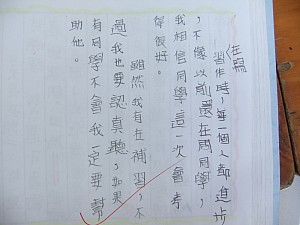 在寫
習作時，每一個人都進步
，不像以前還在問同學，
我相信同學這一次會考
得很好。
雖然我有在補習，不
過我也要認真聽，如果
有同學不會我一定要幫
助他。